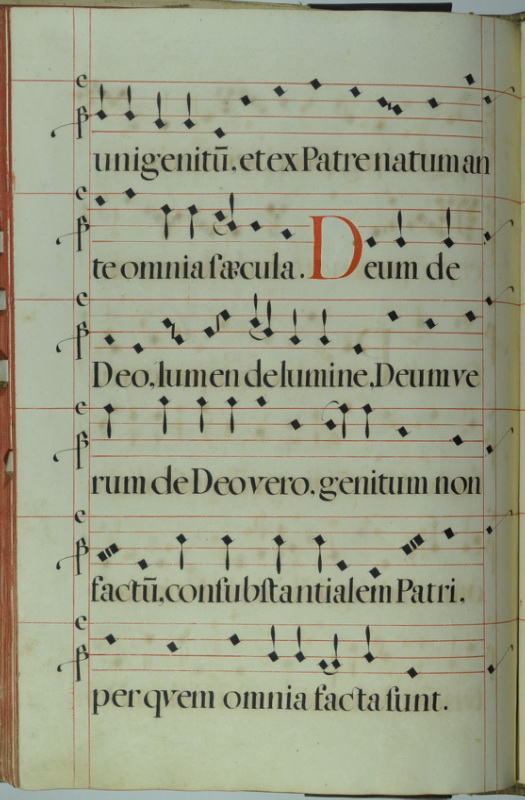 unigenitū, et ex Patre natum an
te omnia ſæcula. Deum de
Deo, lumen de lumine, Deum ve
rum de Deo vero, genitum non
factū, conſubſtantialem Patri.
per qvem omnia facta ſunt.